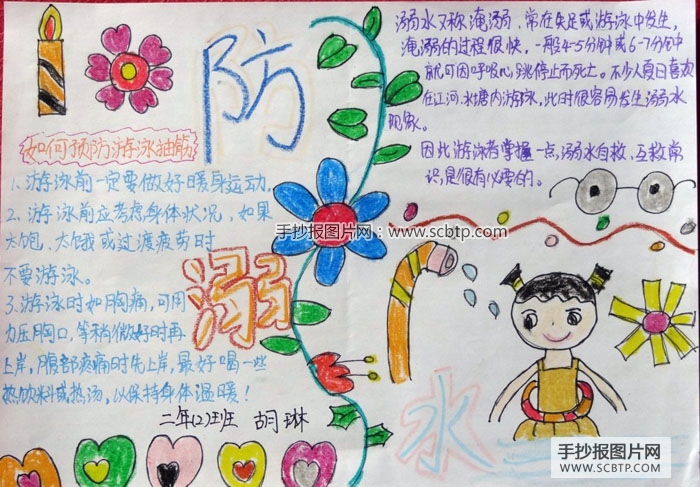 防
溺
水
如何预防游泳抽筋
1、游泳前一定要做好暖身运动.
2、游泳前应考虑身体状况，如果
太饱、太饿或过渡疲劳时
不要游泳。
3.游泳时如胸痛，可用
力压胸口，等稍微好时再
上岸，腹部疼痛时先上岸，最好喝一些
热饮料或热汤，以保持身体温暖！
二年(2)班 胡琳
溺水又称淹溺、常在失足或游泳中发生，
淹溺的过程很快，一般4-5分钟或6-7分钟中
就可因呼吸心跳停止而死亡。不少人夏日喜欢
在江河.水塘内游泳，此时很容易发生溺水
现象。
因此游泳者掌握一点，溺水自救、互救常
识,是很有必要的。
手抄报图片网：www.scbtp.com
手抄报图片网
WWW.SCBTP.COM